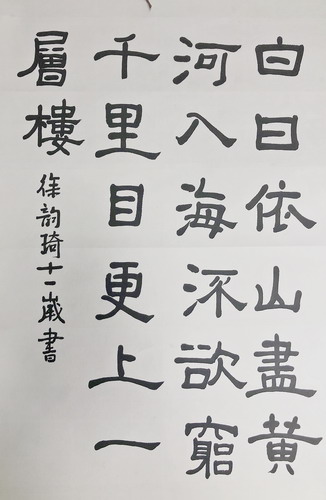 白日依山盡黃
河入海流欲窮
千里目更上一
層樓
徐韵琦十一歲書